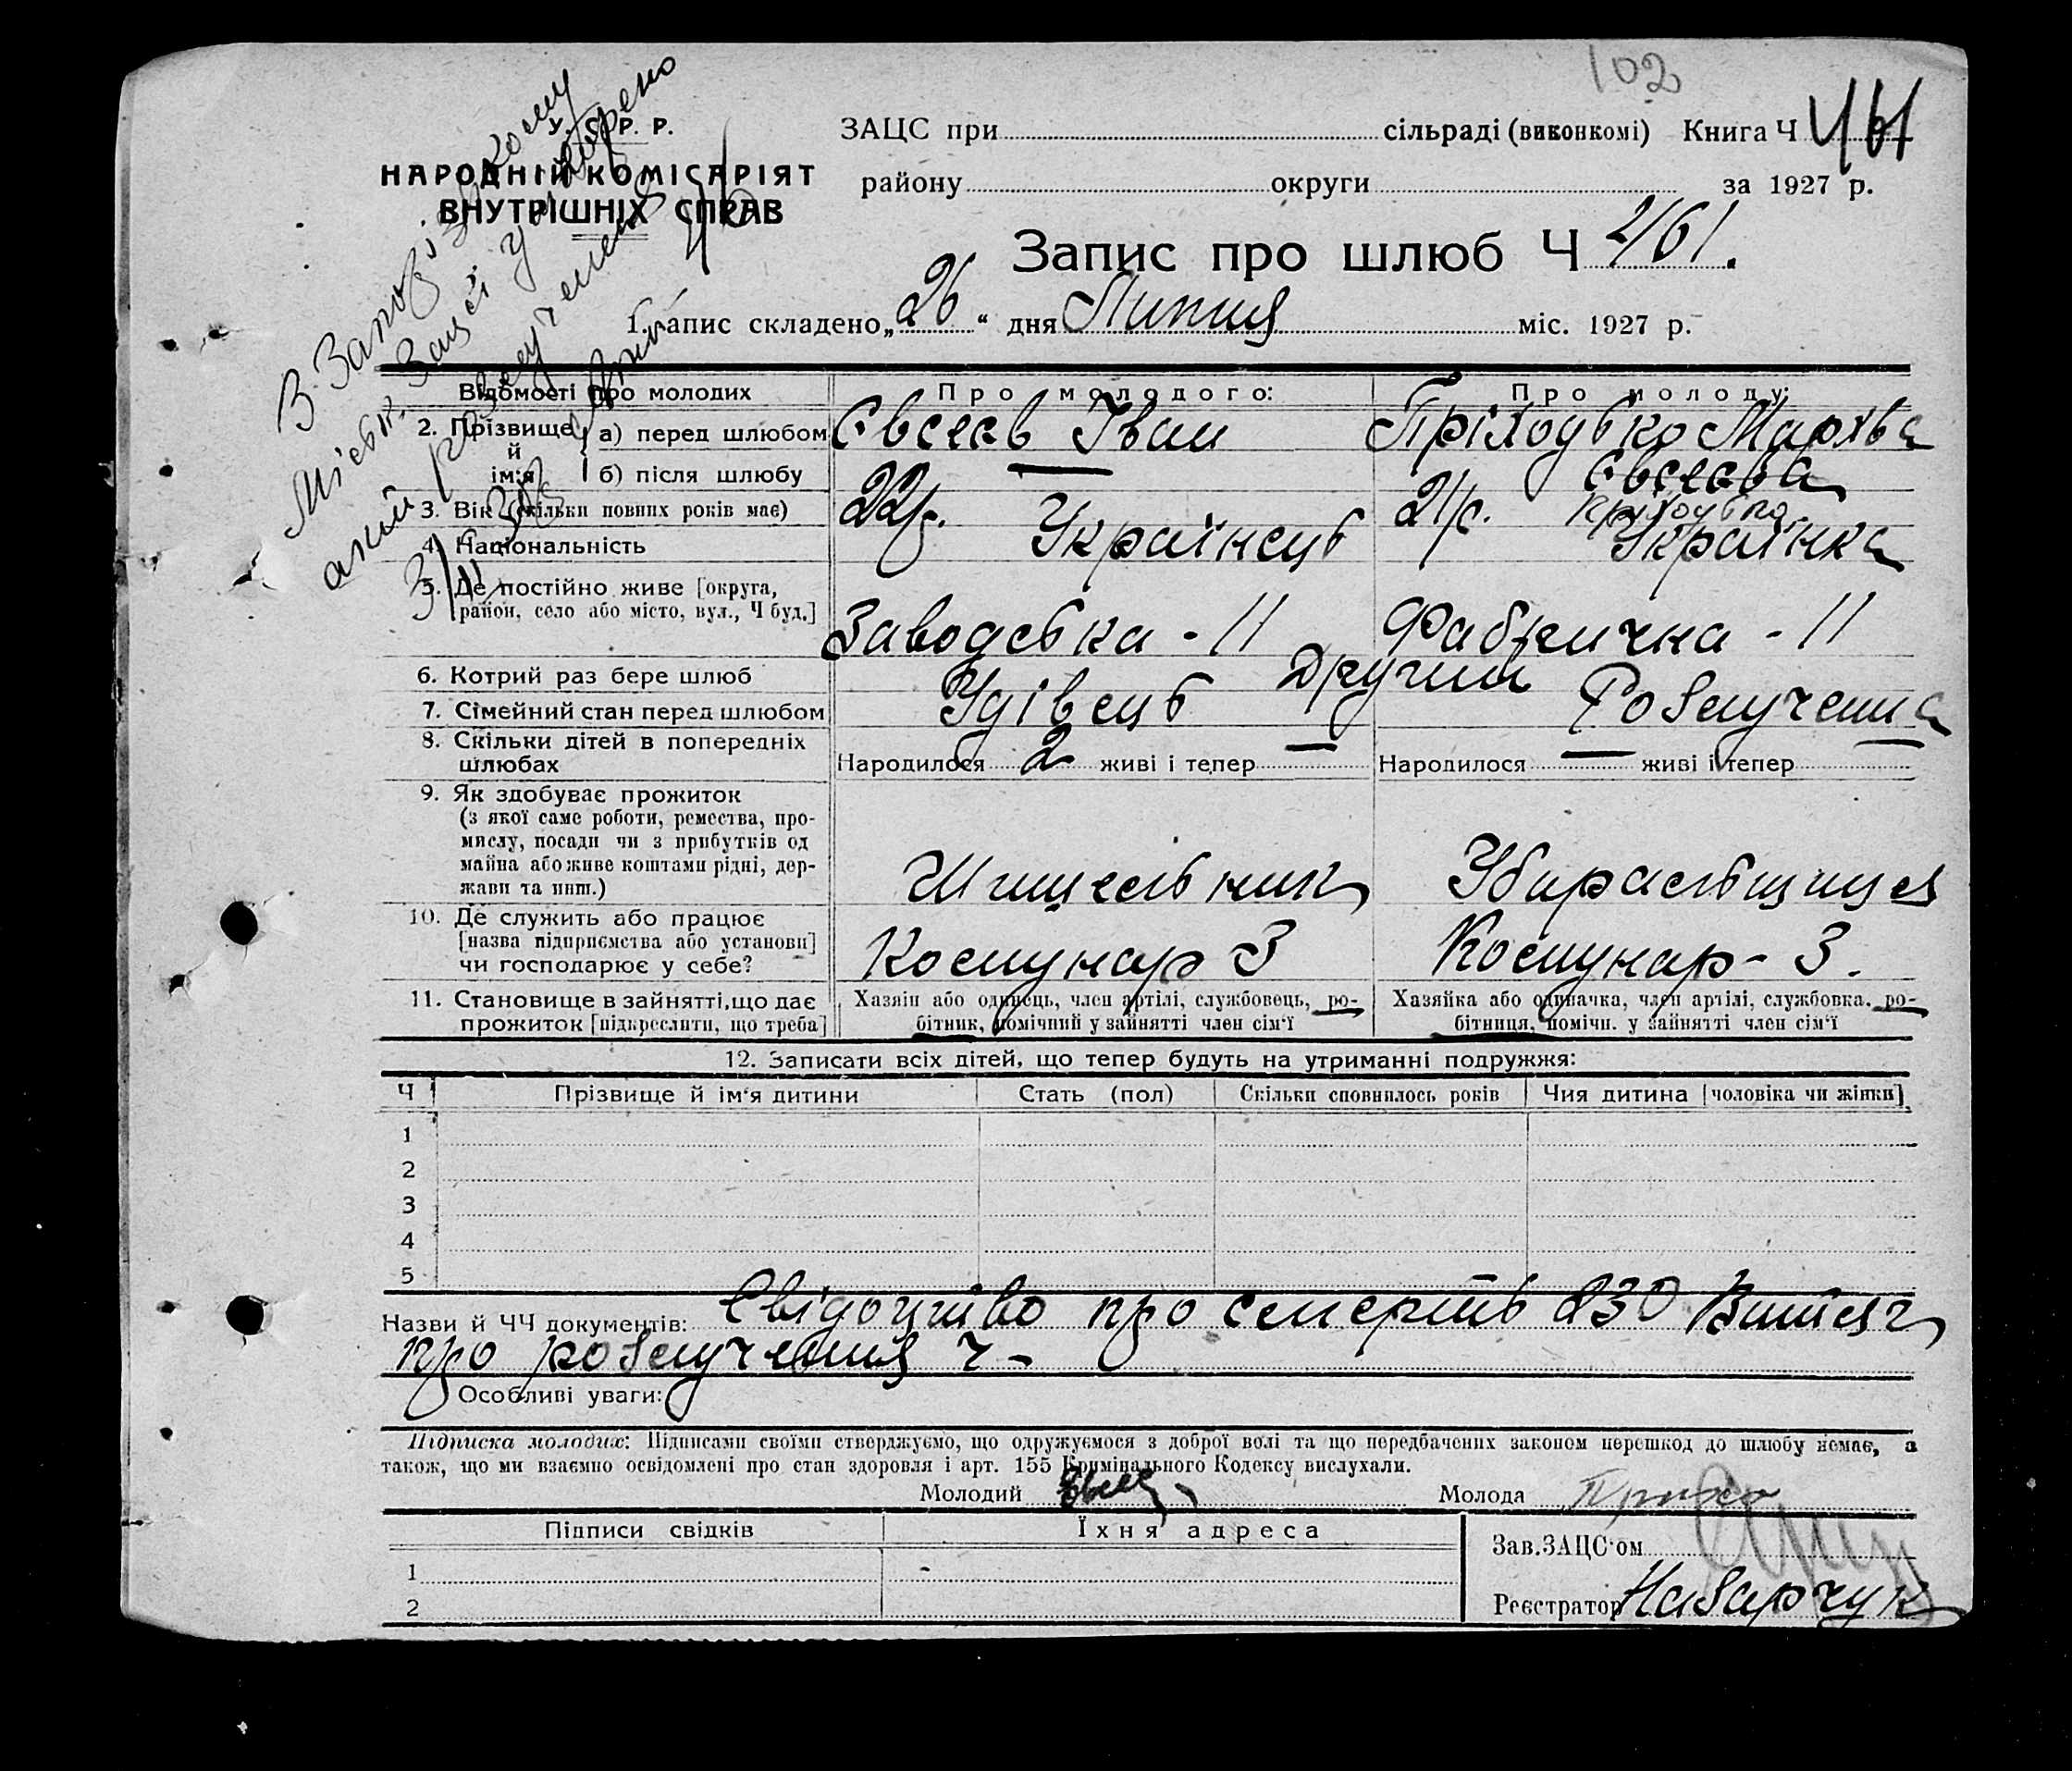 102
У. С. Р. Р.
НАРОДНІЙ КОМІСАРІЯТ
ВНУТРІШНІХ СПРАВ
ЗАЦС при сільраді (виконкомі) Книга Ч 461
району округи за 1927 р.
Запис про шлюб Ч 461.
1. Запис складено „26“ дня Липня міс. 1927 р.
В Запорізькому
Міськ. Загсі
розлучення
Відомості про молодих Про молодого: Про молоду:
2. Прізвище й ім'я а) перед шлюбом Євсеєв Іван Пріходько Мархва
б) після шлюбу Євсеєва
Пріходько
3. Вік (скільки повних років має) 22 р. 21 р.
4. Національність Українець Українка
5. Де постійно живе [округа, район, село або місто, вул., Ч буд.] Заводська - 11 Фабрична - 11
6. Котрий раз бере шлюб Другий
7. Сімейний стан перед шлюбом Удівець Розлучена
8. Скільки дітей в попередніх шлюбах Народилося 2 живі і тепер — Народилося — живі і тепер —
9. Як здобуває прожиток
(з якої саме роботи, ремества, промислу, посади чи з прибутків од майна або живе коштами рідні, держави та инш.) Шишельник Убиральщиця
10. Де служить або працює
[назва підприємства або установи] чи господарює у себе? Комунар З Комунар - З.
11. Становище в зайнятті, що дає прожиток [підкреслити, що треба] Хазяін або одинець, член артілі, службовець, робітник, помічний у зайнятті член сім'ї Хазяйка або одиначка, член артілі, службовка, робітниця, помічн. у зайнятті член сім'ї
12. Записати всіх дітей, що тепер будуть на утриманні подружжя:
Ч Прізвище й ім'я дитини Стать (пол) Скільки сповнилось років Чия дитина [чоловіка чи жінки]
1
2
3
4
5
Назви й ЧЧ документів: Свідоцтво про смерть 830 Витяг
про розлучення ч -
Особливі уваги:
Підписка молодих: Підписами своїми стверджуємо, що одружуємося з доброї волі та що передбачених законом перешкод до шлюбу немає, а
також, що ми взаємно освідомлені про стан здоровля і арт. 155 Кримінального Кодексу вислухали.
Молодий Євсеев Молода Прихо
Підписи свідків Їхня адреса
Зав. ЗАЦС'ом
1
2
Реєстратор Назарчук